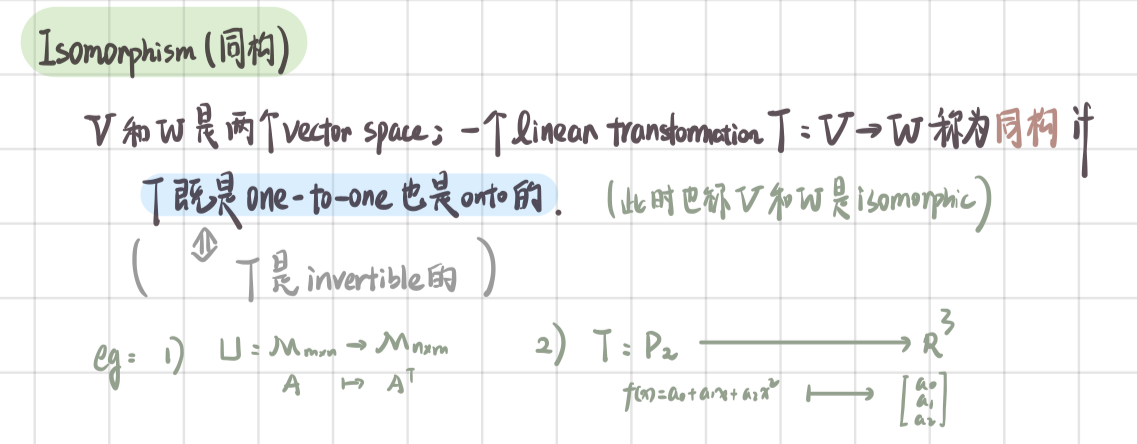 Isomorphism (同构)
V 和 W 是 两个 vector space; 一个 linear transformation T : V → W 称为 同构 if
T 既是 one-to-one 也是 onto 的. (此时也称 V 和 W 是 isomorphic)
( ⇕ T 是 invertible 的 )
eg: 1) U : Mm×n → Mn×m 2) T : P₂ ⟶ R³
A ↦ Aᵀ f(x)=a₀+a₁x+a₂x² ⟼ [a₀ a₁ a₂]